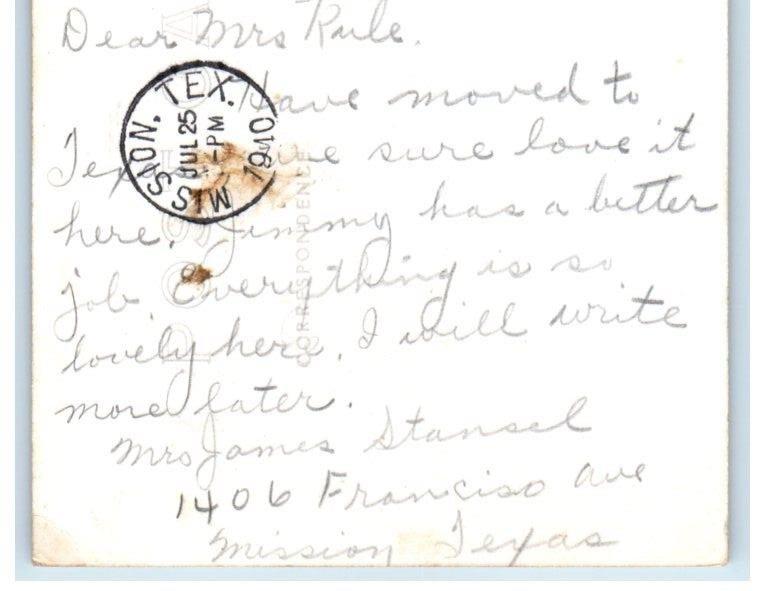 Dear Mrs Rule.
Have moved to
Texas we sure love it
here. Jimmy has a better
job. Everything is so
lovely here. I will write
more later.
Mrs James Stansel
1406 Franciso ave
Mission Texas
MISSION, TEX.
JUL 25
-PM
1940
CORRESPONDENCE